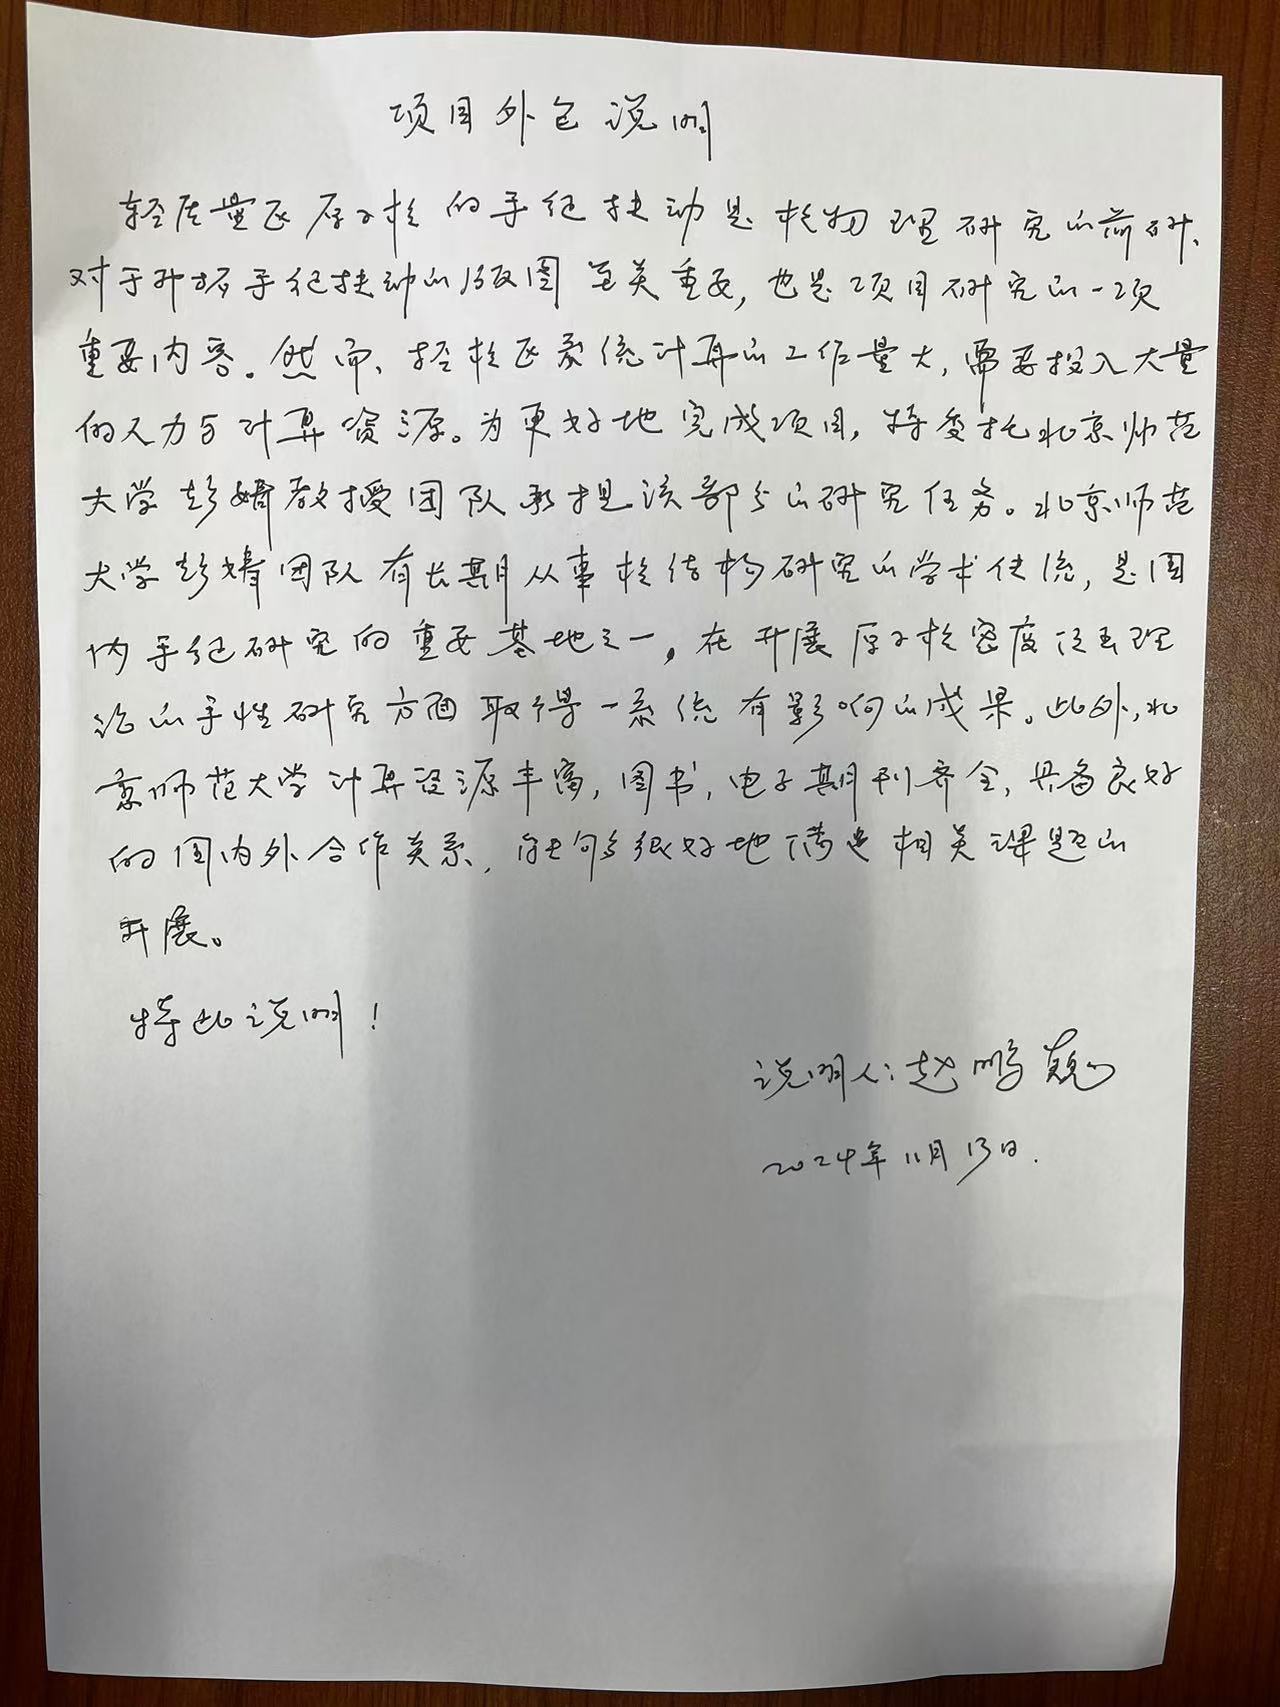 项目外包说明
轻质量区原子核的手征扶动是核物理研究的前研、
对于开拓手征扶动的版图至关重要,也是项目研究的一项
重要内容。然而、轻核区系统计算的工作量大,需要投入大量
的人力与计算资源。为更好地完成项目,特委托北京师范
大学彭婧教授团队承担该部分的研究任务。北京师范
大学彭婧团队有长期从事核结构研究的学术传统,是国
内手征研究的重要基地之一,在开展原子核密度泛函理
论的手性研究方面取得一系统有影响的成果。此外,北
京师范大学计算资源丰富,图书,电子期刊齐全,具备良好
的国内外合作关系,能够很好地满足相关课题的
开展。
特此说明!
说明人:赵鹏巍
2024年11月13日.